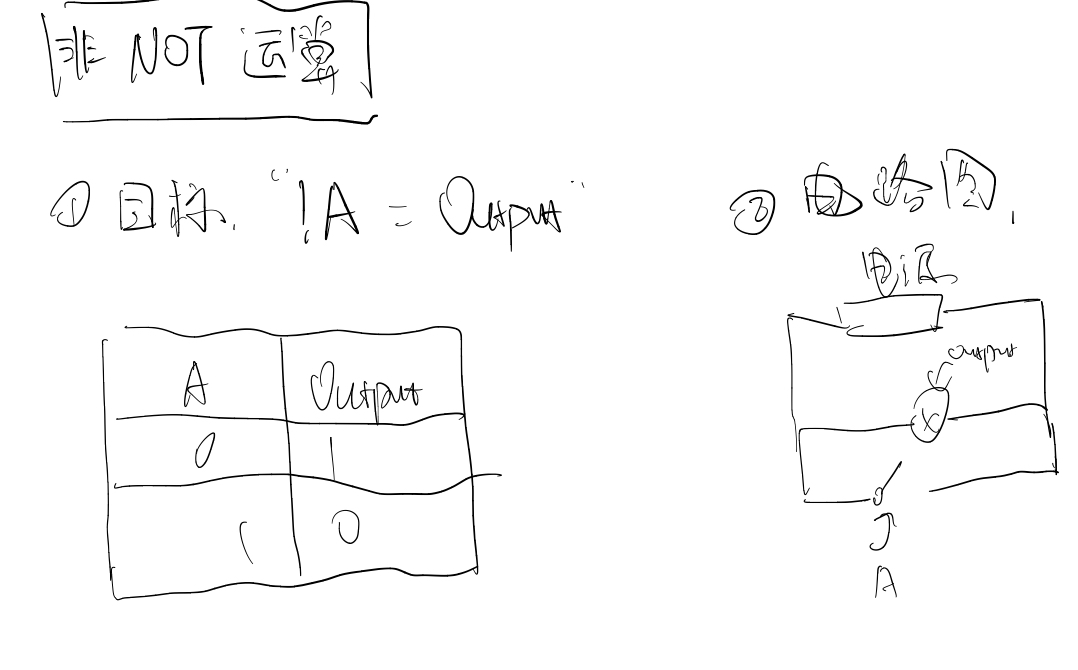 非 NOT 运算
① 目标. "!A = Output"
A Output
0 1
1 0
② 电路图.
电源
Output
A